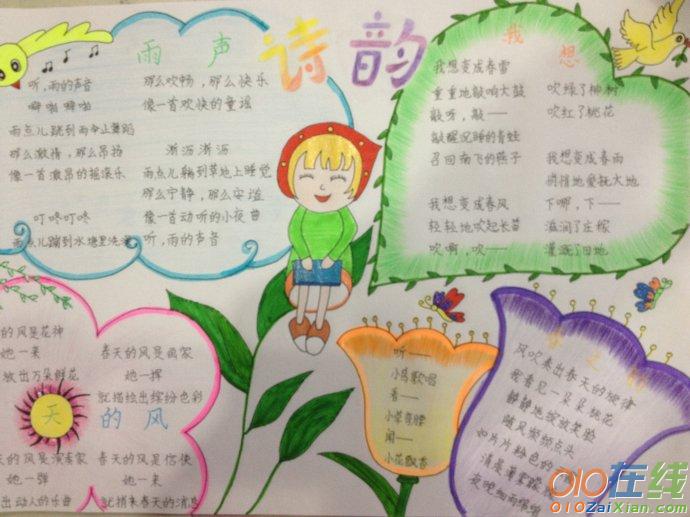 诗韵
雨声
听,雨的声音
噼啪 噼啪
雨点儿跳到雨伞上舞蹈
那么激情,那么昂扬
像一首激昂的摇滚乐
叮咚叮咚
雨点儿蹦到水塘里洗澡
那么欢畅,那么快乐
像一首欢快的童谣
淅沥淅沥
雨点儿躺到草地上睡觉
那么宁静,那么安谧
像一首动听的小夜曲
听,雨的声音
我想
我想变成春雷
重重地敲响大鼓
敲呀,敲——
敲醒沉睡的青蛙
召回南飞的燕子
我想变成春风
轻轻地吹起长笛
吹啊,吹——
吹绿了柳树
吹红了桃花
我想变成春雨
悄悄地爱抚大地
下哪,下——
滋润了庄稼
灌溉了田地
天的风
的风是花神
她一来
放出万朵鲜花
春天的风是画家
她一挥
就描绘出缤纷色彩
的风是演奏家
她一弹
出动人的乐曲
春天的风是信使
她一来
就捎来春天的消息
听——
小鸟歌唱
看——
小草弯腰
闻——
小花飘香
春之
风吹奏出春天的旋律
我看见一朵朵桃花
静静地绽放笑脸
随风频频点头
如片片粉色的
清晨
夜晚细雨
010在线
010ZaiXian.com